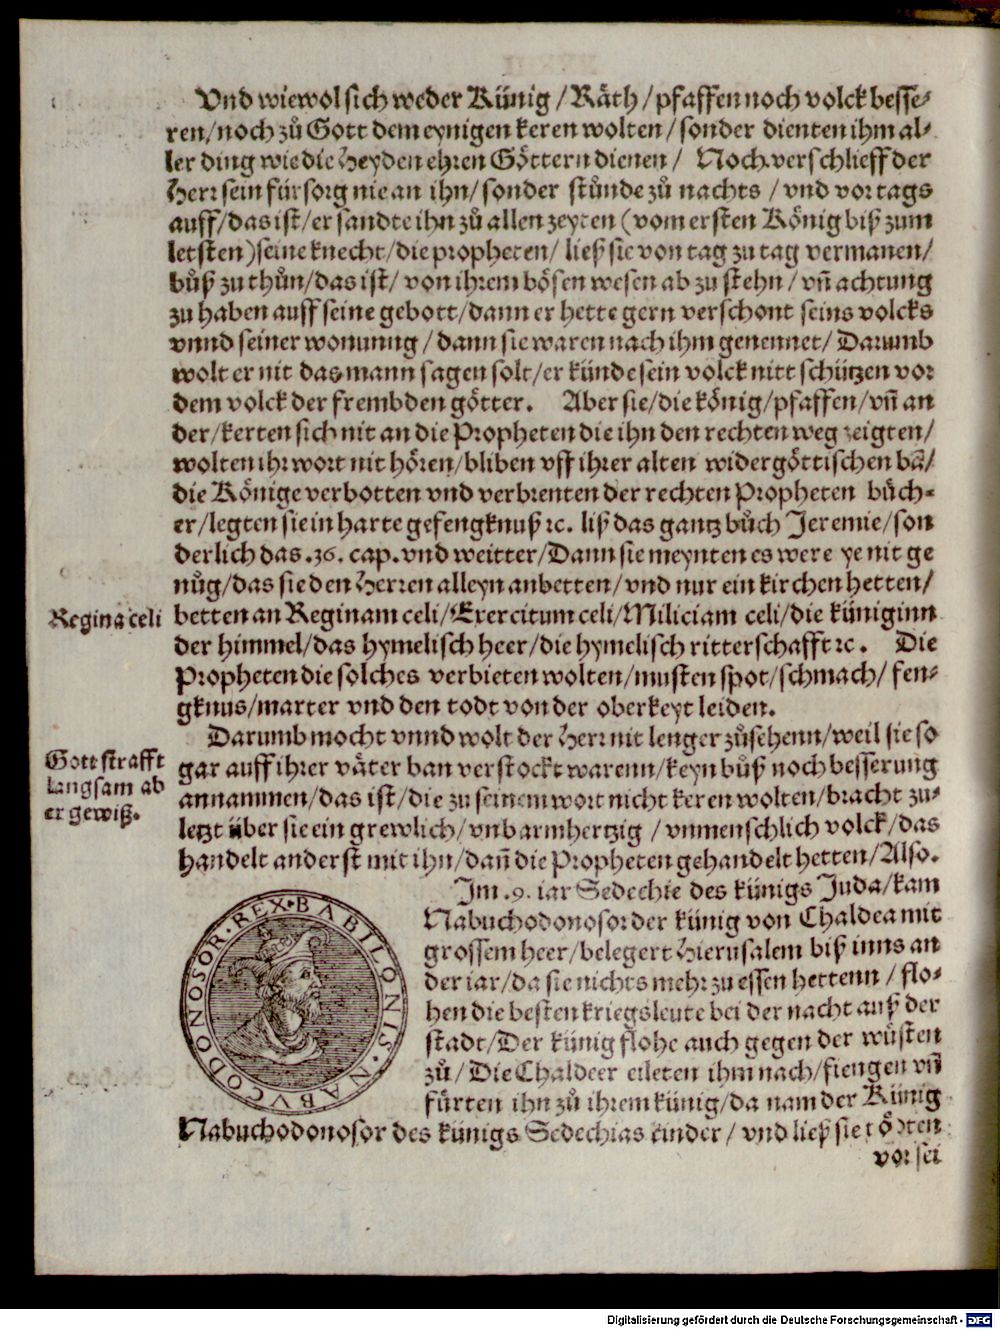 Vnd wiewol sich weder Künig / Räth / pfaffen noch volck besse-
ren / noch zů Gott dem eynigen keren wolten / sonder dienten ihm al-
ler ding wie die Heyden ehren Göttern dienen / Noch verschlieff der
Herr sein fürsorg nie an ihn / sonder stůnde zů nachts / vnd vor tags
auff / das ist / er sandte ihn zů allen zeyten (vom ersten König biß zum
letsten) seine knecht / die propheten / ließ sie von tag zu tag vermanen /
bůß zu thůn / das ist / von ihrem bösen wesen ab zu stehn / vñ achtung
zu haben auff seine gebott / dann er hette gern verschont seins volcks
vnnd seiner wonunng / dann sie waren nach ihm genennet / Darumb
wolt er nit das mann sagen solt / er künde sein volck nitt schützen vor
dem volck der frembden götter. Aber sie / die könig / pfaffen / vñ an
der / kerten sich nit an die Propheten die ihn den rechten weg zeigten /
wolten ihr wort nit hören / bliben vff ihrer alten widergöttischen bã /
die Könige verbotten vnd verbrenten der rechten Propheten büch-
er / legten sie in harte gefengknuß ꝛc. liß das gantz bůch Jeremie / son
derlich das .36. cap. vnd weitter / Dann sie meynten es were ye nit ge
nůg / das sie den Herren alleyn anbetten / vnd nur ein kirchen hetten /
Regina celi
betten an Reginam celi / Exercitum celi / Miliciam celi / die küniginn
der himmel / das hymelisch heer / die hymelisch ritterschafft ꝛc. Die
Propheten die solches verbieten wolten / musten spot / schmach / fen-
gknus / marter vnd den todt von der oberkeyt leiden.
Darumb mocht vnnd wolt der Herr nit lenger zůsehenn / weil sie so
Gott strafft
langsam ab
er gewiß.
gar auff ihrer väter ban verstockt warenn / keyn bůß noch besserung
annammen / das ist / die zu seinem wort nicht keren wolten / bracht zu-
letzt über sie ein grewlich / vnbarmhertzig / vnmenschlich volck / das
handelt anderst mit ihn / dañ die Propheten gehandelt hetten / Also.
NABVCODONOSOR·REX·BABILONIS·
Im .9. iar Sedechie des künigs Juda / kam
Nabuchodonosor der künig von Chaldea mit
grossem heer / belegert Hierusalem biß inns an
der iar / da sie nichts mehr zu essen hettenn / flo-
hen die besten kriegsleute bei der nacht auß der
stadt / Der künig flohe auch gegen der wüsten
zů / Die Chaldeer eileten ihm nach / fiengen vñ
fürten ihn zů ihrem künig / da nam der Künig
Nabuchodonosor des künigs Sedechias kinder / vnd ließ sie tödten
vor sei
Digitalisierung gefördert durch die Deutsche Forschungsgemeinschaft - DFG